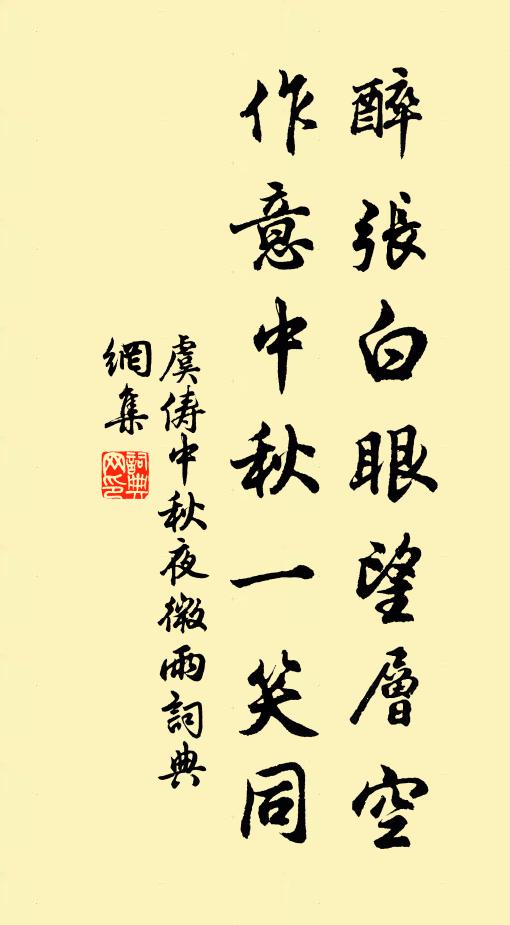 醉張白眼望層空
作意中秋一笑同
虞儔中秋夜微雨詞典
網集
詞典
网印